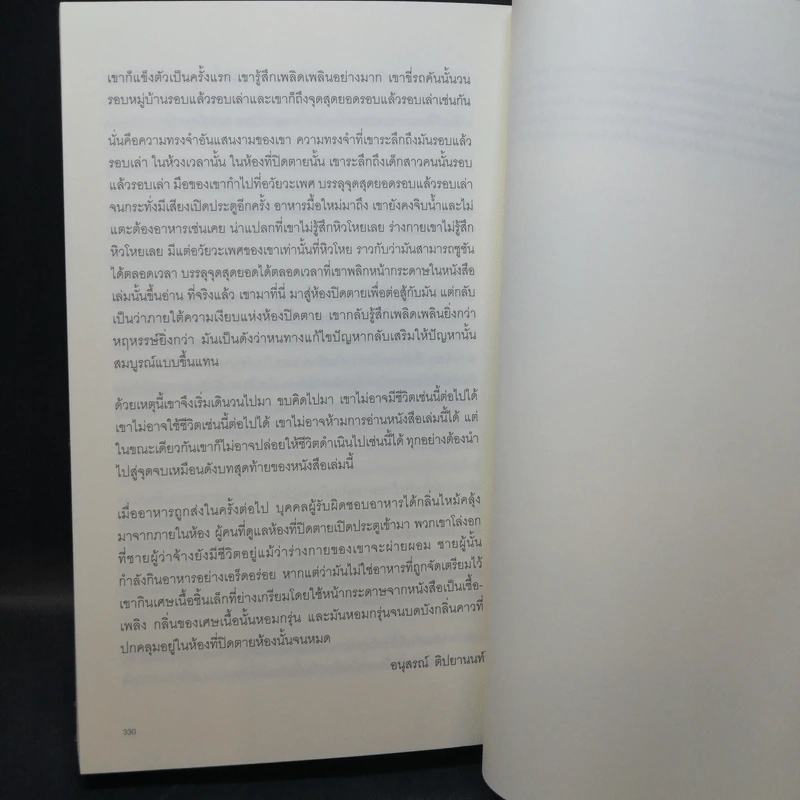 เขาก็แข็งตัวเป็นครั้งแรก เขารู้สึกเพลิดเพลินอย่างมาก เขาขี่รถคันนั้นวน
รอบหมู่บ้านรอบแล้วรอบเล่าและเขาก็ถึงจุดสุดยอดรอบแล้วรอบเล่าเช่นกัน
นั่นคือความทรงจำอันแสนงามของเขา ความทรงจำที่เขาระลึกถึงมันรอบแล้ว
รอบเล่า ในห้วงเวลานั้น ในห้องที่ปิดตายนั้น เขาระลึกถึงเด็กสาวคนนั้นรอบ
แล้วรอบเล่า มือของเขากำไปที่อวัยวะเพศ บรรลุจุดสุดยอดรอบแล้วรอบเล่า
จนกระทั่งมีเสียงเปิดประตูอีกครั้ง อาหารมื้อใหม่มาถึง เขายังคงจิบน้ำและไม่
แตะต้องอาหารเช่นเคย น่าแปลกที่เขาไม่รู้สึกหิวโหยเลย ร่างกายเขาไม่รู้สึก
หิวโหยเลย มีแต่อวัยวะเพศของเขาเท่านั้นที่หิวโหย ราวกับว่ามันสามารถชูชัน
ได้ตลอดเวลา บรรลุจุดสุดยอดได้ตลอดเวลาที่เขาพลิกหน้ากระดาษในหนังสือ
เล่มนั้นขึ้นอ่าน ที่จริงแล้ว เขามาที่นี่ มาสู่ห้องปิดตายเพื่อต่อสู้กับมัน แต่กลับ
เป็นว่าภายใต้ความเงียบแห่งห้องปิดตาย เขากลับรู้สึกเพลิดเพลินยิ่งกว่า
หฤหรรษ์ยิ่งกว่า มันเป็นดังว่าหนทางแก้ไขปัญหากลับเสริมให้ปัญหานั้น
สมบูรณ์แบบขึ้นแทน
ด้วยเหตุนี้เขาจึงเริ่มเดินวนไปมา ขบคิดไปมา เขาไม่อาจมีชีวิตเช่นนี้ต่อไปได้
เขาไม่อาจใช้ชีวิตเช่นนี้ต่อไปได้ เขาไม่อาจห้ามการอ่านหนังสือเล่มนี้ได้ แต่
ในขณะเดียวกันเขาก็ไม่อาจปล่อยให้ชีวิตดำเนินไปเช่นนี้ได้ ทุกอย่างต้องนำ
ไปสู่จุดจบเหมือนดังบทสุดท้ายของหนังสือเล่มนี้
เมื่ออาหารถูกส่งในครั้งต่อไป บุคคลผู้รับผิดชอบอาหารได้กลิ่นไหม้คลุ้ง
มาจากภายในห้อง ผู้คนที่ดูแลห้องที่ปิดตายเปิดประตูเข้ามา พวกเขาโล่งอก
ที่ชายผู้ว่าจ้างยังมีชีวิตอยู่แม้ว่าร่างกายของเขาจะผ่ายผอม ชายผู้นั้น
กำลังกินอาหารอย่างเอร็ดอร่อย หากแต่ว่ามันไม่ใช่อาหารที่ถูกจัดเตรียมไว้
เขากินเศษเนื้อชิ้นเล็กที่ย่างเกรียมโดยใช้หน้ากระดาษจากหนังสือเป็นเชื้อ-
เพลิง กลิ่นของเศษเนื้อนั้นหอมกรุ่น และมันหอมกรุ่นจนบดบังกลิ่นคาวที่
ปกคลุมอยู่ในห้องที่ปิดตายห้องนั้นจนหมด
อนุสรณ์ ติปยานนท์
330